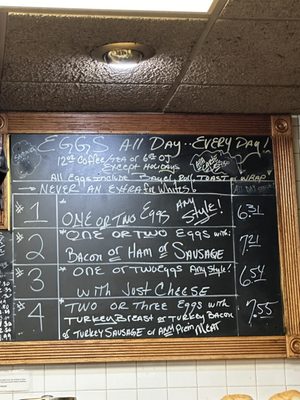 EGGS All Day.. EVERY Day!
12oz Coffee/Tea or 6oz OJ
Except Holidays
All Eggs include Bagel, Roll, Toast or Wrap
→ NEVER AN Extra for Whites!
#1 * ONE OR TWO Eggs ANY STYLE! 6.31
#2 * ONE OR TWO EGGS with:
BACON or HAM or SAUSAGE 7.21
#3 * ONE OR TWO EGGS Any STYLE!
with JUST CHEESE 6.54
#4 * TWO OR THREE EGGS WITH
TURKEY BREAST or TURKEY BACON
or TURKEY SAUSAGE or Any Main MEAT 7.55